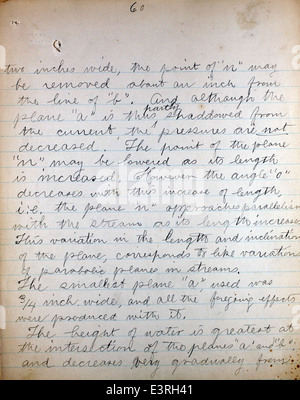 60
two inches wide, the point of "n" may
be removed about an inch from
the line of "b". And although the
partly
plane "a" is thus shaddowed from
the current the pressures are not
decreased. The point of the plane
"n" may be lowered as its length
is increased. However the angle "o"
decreases with this increase of length,
i.e. the plane "n" approaches parallelism
with the stream as its length increases
This variation in the length and inclination
of the plane, corresponds to like variations
of parabolic planes in streams.
The smallest plane "a" used was
3/4 inch wide, and all the forgoing effects
were produced with it.
The height of water is greatest at
the intersection of the planes "a" and "b"
and decreases very gradually from
alamy
E3RH41
www.alamy.com